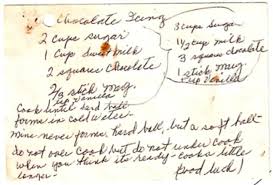 Chocolate Icing
2 cups sugar
1 cup sweet milk
2 squares chocolate
2/3 stick marg.
1 tsp vanilla
Cook until hard ball
forms in cold water.
mine never forms hard ball, but a soft ball-
do not over cook but do not under cook
when you think its ready - cook a little
longer.
Good luck!
3 cups sugar
1 1/2 cup milk
3 square chocolate
1 stick marg
1 tsp vanilla